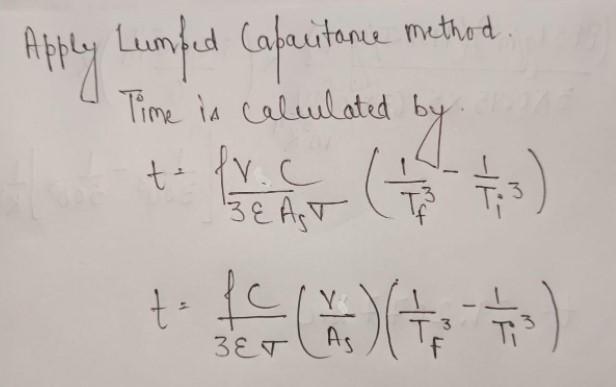 Apply Lumped Capacitance method.
Time is calculated by.
t = ρV.C / 3εAₛσ (1/T_f³ - 1/T_i³)
t = ρC / 3εσ (V/Aₛ) (1/T_f³ - 1/T_i³)